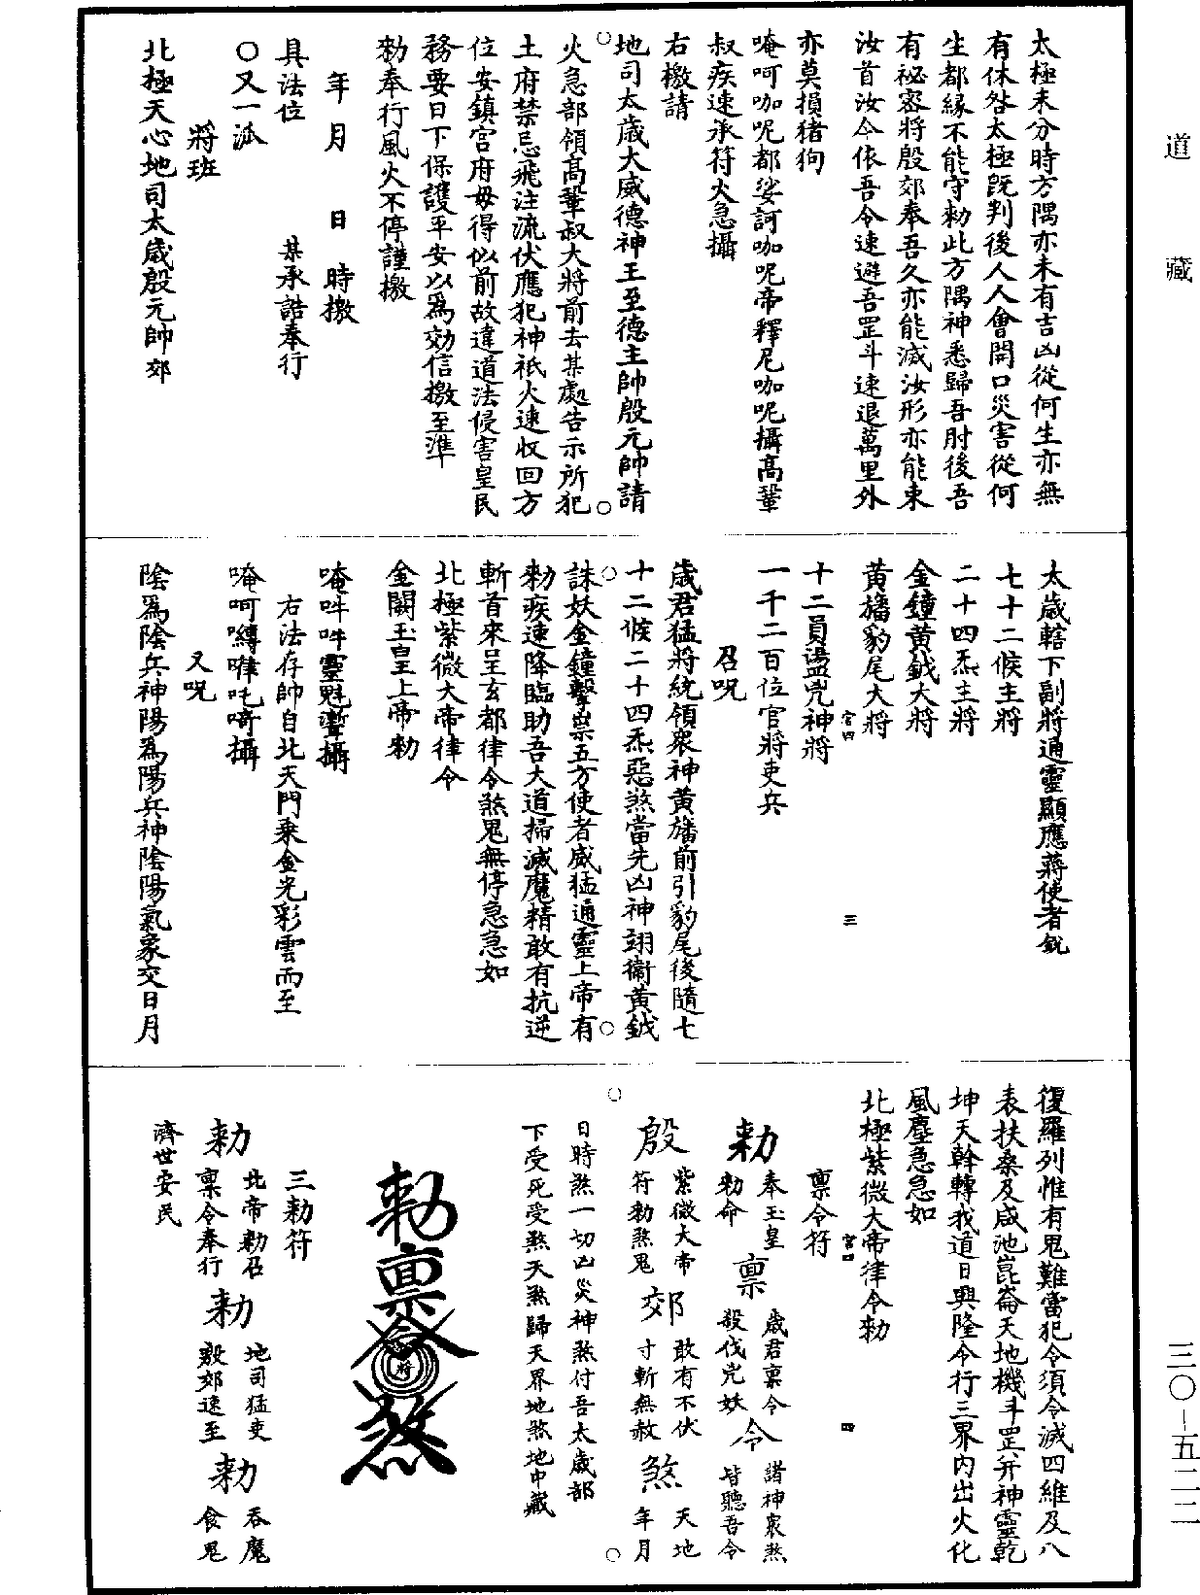 道藏
三〇－五二二
太極未分時方隅亦未有吉凶從何生亦無
有休咎太極既判後人人會開口災害從何
生都緣不能守勑此方隅神悉歸吾肘後吾
有祕密將殷郊奉吾久亦能滅汝形亦能束
汝首汝今依吾令速避吾罡斗速退萬里外
亦莫損猪狗
唵呵咖呢都娑訶咖呢帝釋尼咖呢攝高鞏
叔疾速承符火急攝
右檄請
地司太歲大威德神王至德主帥殷元帥請
火急部領高鞏叔大將前去某處告示所犯
土府禁忌飛注流伏應犯神祇火速收回方
位安鎮宮府毋得似前故違道法侵害皇民
務要日下保護平安以爲効信檄至準
勑奉行風火不停謹檄
年 月 日 時檄
具法位 某承誥奉行
〇又一派
將班
北極天心地司太歲殷元帥郊
太歲轄下副將通靈顯應蔣使者銳
七十二候主將
二十四炁主將
金鐘黃鉞大將
黃旛豹尾大將
十二員盪兇神將
一千二百位官將吏兵
召呪
歲君猛將統領衆神黃旛前引豹尾後隨七
十二候二十四炁惡煞當先凶神翊衞黃鉞
誅妖金鐘擊祟五方使者威猛通靈上帝有
勑疾速降臨助吾大道掃滅魔精敢有抗逆
斬首來呈玄都律令煞鬼無停急急如
北極紫微大帝律令
金闕玉皇上帝勑
唵吽吽靈魁攝
右法存帥自北天門乘金光彩雲而至
又呪
陰爲陰兵神陽爲陽兵神陰陽氣象交日月
復羅列惟有鬼難當犯令須令滅四維及八
表扶桑及咸池崑崙天地機斗罡并神靈乾
坤天斡轉我道日興隆令行三界內出火化
風塵急急如
北極紫微大帝律令勑
禀令符
勑 奉玉皇勑命
禀 歲君禀令殺伐兇妖
令 諸神衆煞皆聽吾令
殷 紫微大帝符勑煞鬼
郊 敢有不伏寸斬無赦
煞 天地年月
日時煞一切凶災神煞付吾太歲部
下受死受煞天煞歸天界地煞地中藏
勑禀令將煞
三勑符
勑 北帝勑召禀令奉行
勑 地司猛吏殷郊速至
勑 吞魔食鬼
濟世安民